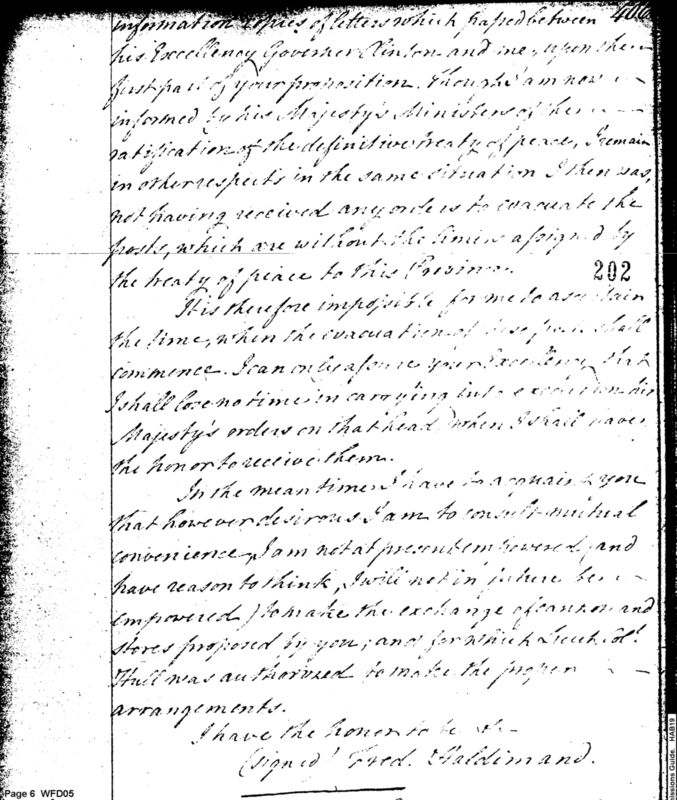 406
information copies of letters which passed between
his Excellency Governor Clinton and me, upon the
first part of your proposition. Though I am now
informed by his Majesty's Ministers of the
ratification of the definitive treaty of peace, I remain
in other respects in the same situation I then was,
not having received any orders to evacuate the
posts, which are without the limits assigned by
the treaty of peace to this Province.
202
It is therefore impossible for me to ascertain
the time, when the evacuation of these posts shall
commence. I can only assure your Excellency, that
I shall lose no time in carrying into execution his
Majesty's orders on that head when I shall have
the honor to receive them.
In the mean time I have to acquaint you
that however desirous I am to consult mutual
convenience, I am not at present empowered, (and
have reason to think, I will not in future be
empowered) to make the exchange of cannon and
stores proposed by you; and for which Lieut. Col.
Hull was authorized to make the proper
arrangements.
I have the honor to be &c
(signed) Fred. Haldimand.
Page 6 WFD05
issions Guide. HAB19